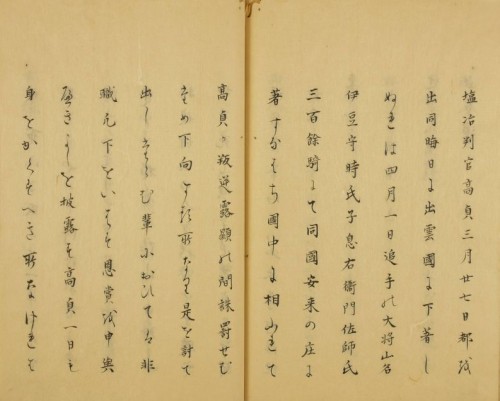 塩冶判官高貞三月廿七日都を
出同晦日に出雲國に下著し
ぬれは四月一日追手の大将山名
伊豆守時氏子息右衛門佐師氏
三百餘騎にて同國安来の庄に
著すなはち國中に相ふれて
高貞か叛逆露顕の間誅罰せむ
ため下向する所なり是を討て
出したらむ輩におひては非
職凡下といはす恩賞を申與
へきよしを披露す高貞一日も
身をかくすへき所なけれは